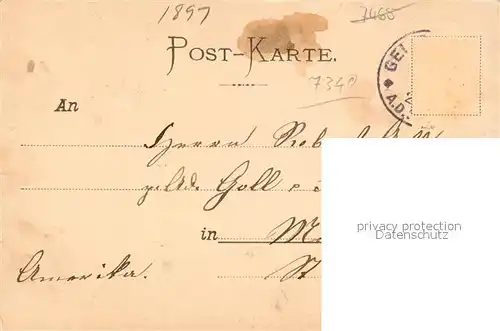 1897 7468
POST-KARTE.
7340
GEI
A.D.
An
Herrn
Goll
in M
Amerika. St
privacy protection
Datenschutz